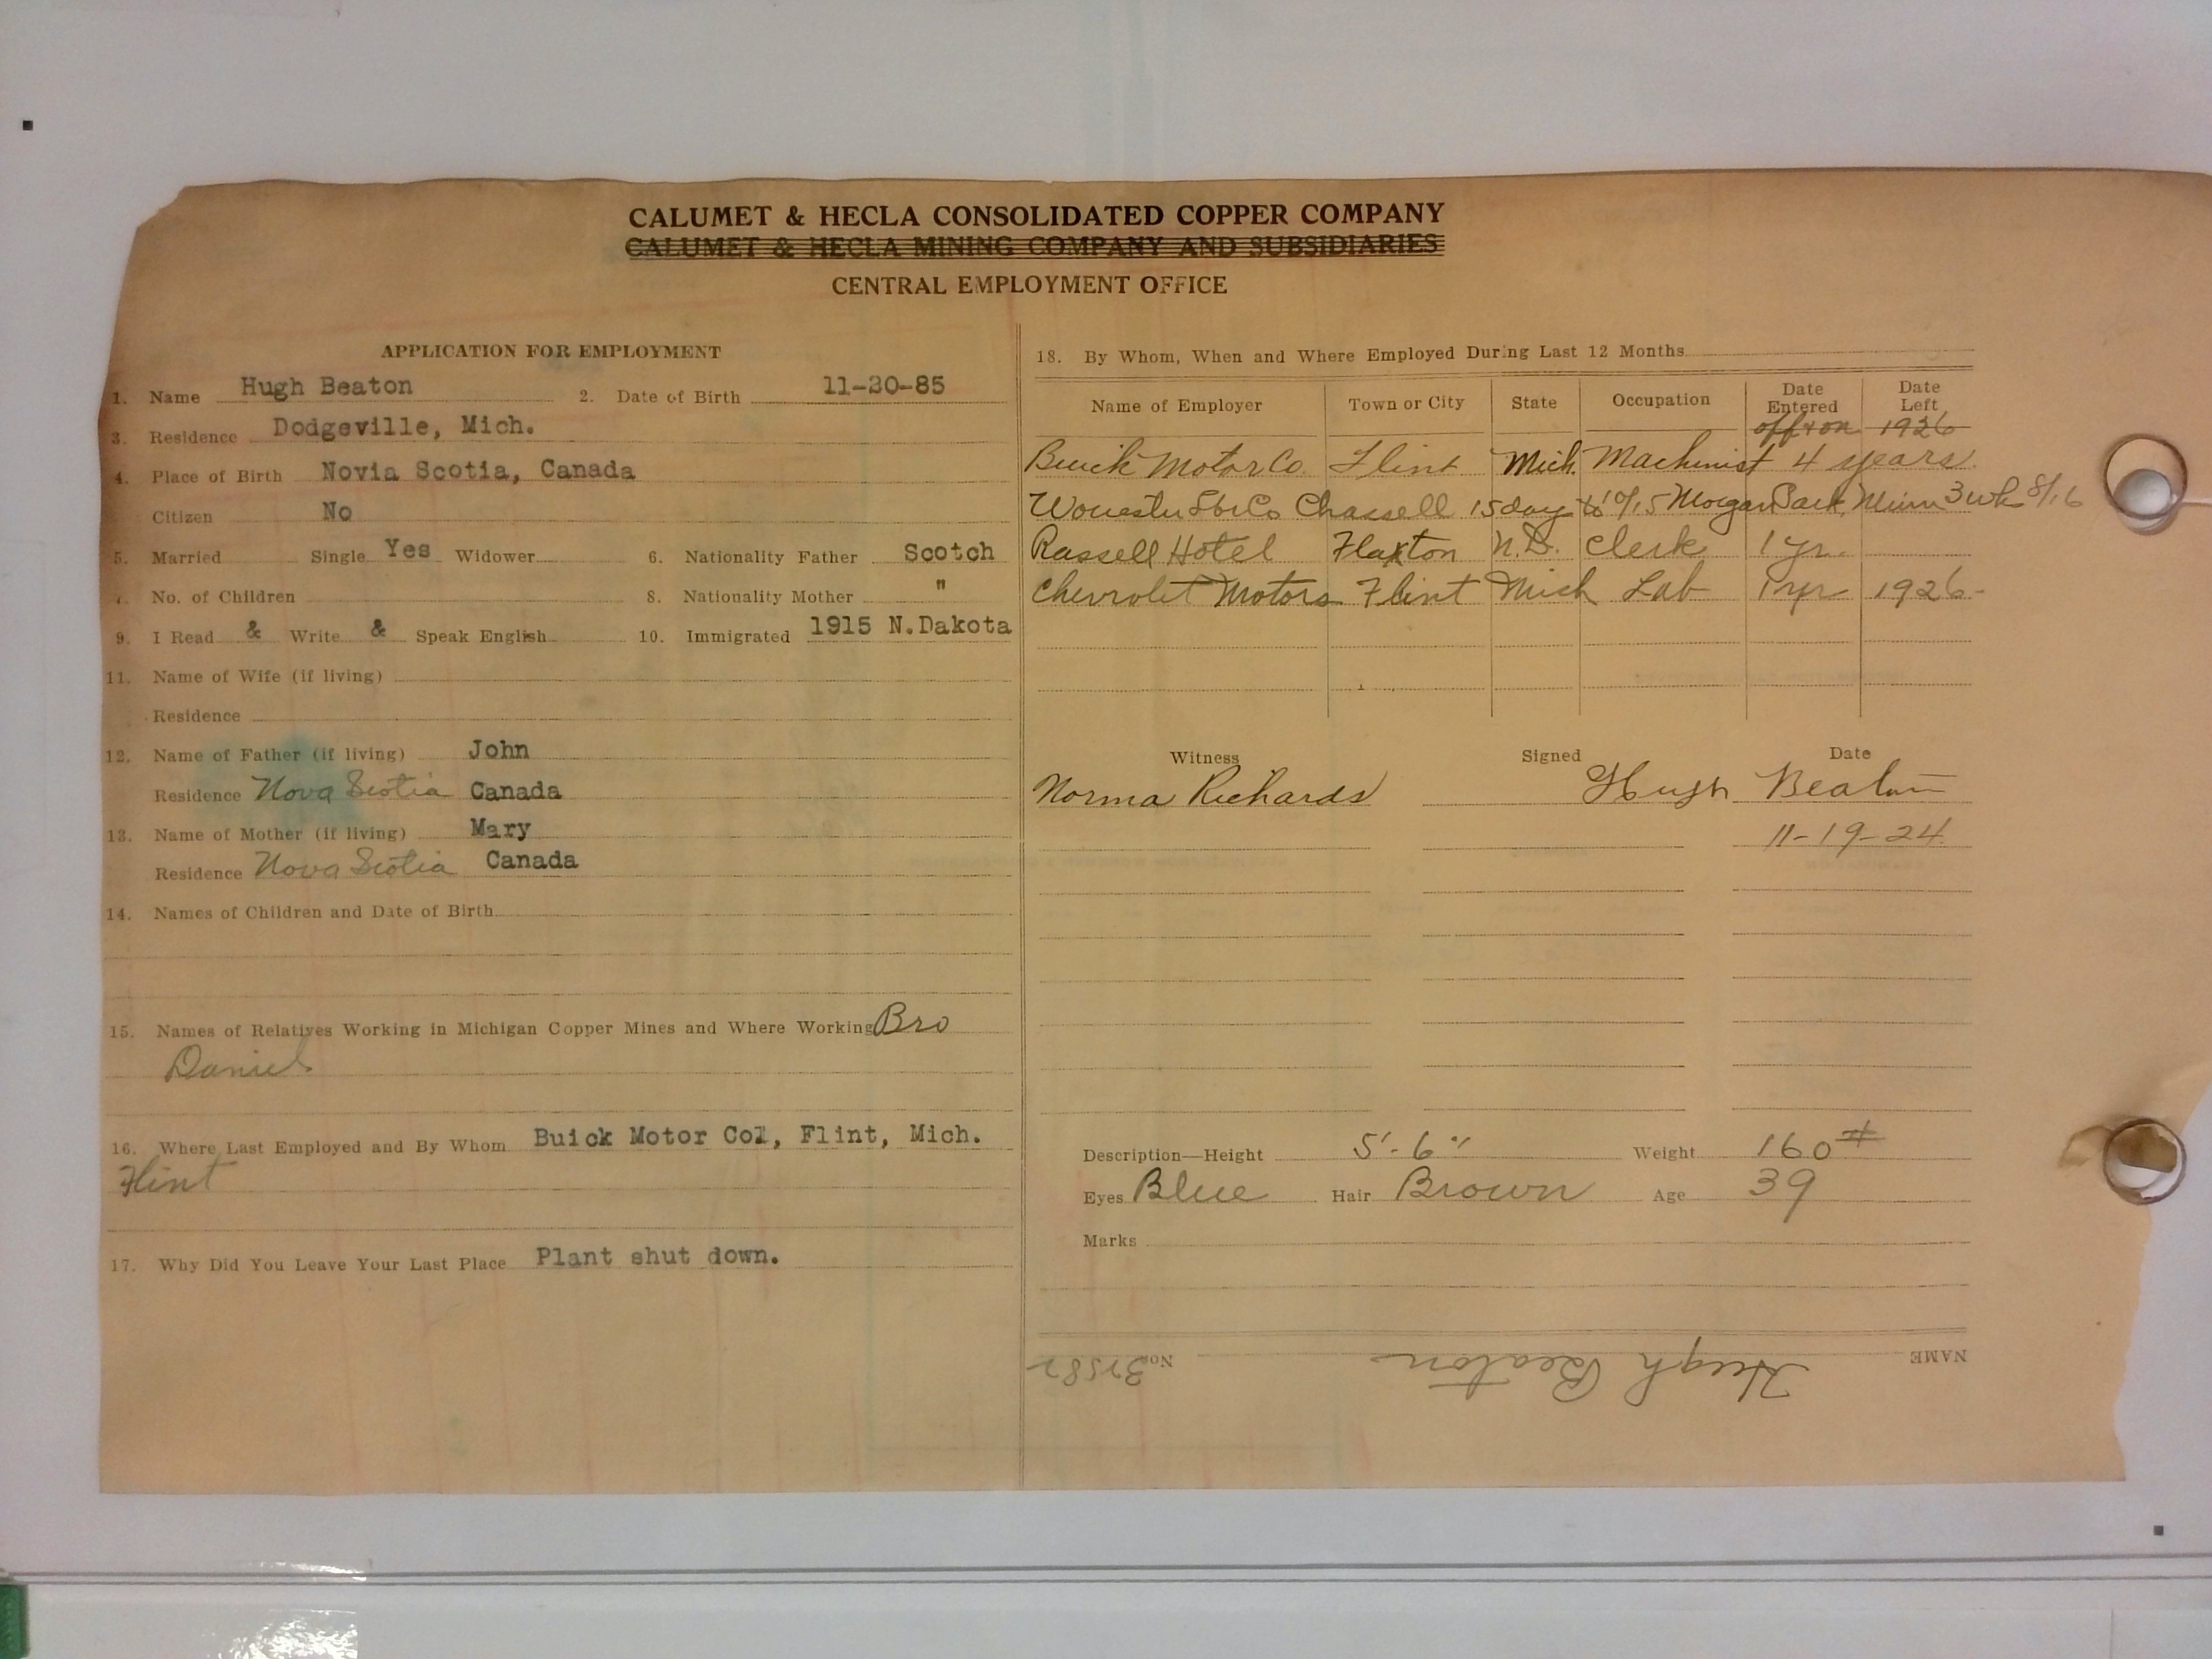 CALUMET & HECLA CONSOLIDATED COPPER COMPANY
CALUMET & HECLA MINING COMPANY AND SUBSIDIARIES
CENTRAL EMPLOYMENT OFFICE
APPLICATION FOR EMPLOYMENT
1. Name Hugh Beaton 2. Date of Birth 11-20-85
3. Residence Dodgeville, Mich.
4. Place of Birth Novia Scotia, Canada
Citizen No
5. Married Single Yes Widower 6. Nationality Father Scotch
7. No. of Children 8. Nationality Mother "
9. I Read & Write & Speak English 10. Immigrated 1915 N.Dakota
11. Name of Wife (if living)
Residence
12. Name of Father (if living) John
Residence Nova Scotia Canada
13. Name of Mother (if living) Mary
Residence Nova Scotia Canada
14. Names of Children and Date of Birth
15. Names of Relatives Working in Michigan Copper Mines and Where Working Bro
Daniel
16. Where Last Employed and By Whom Buick Motor Co1, Flint, Mich.
Flint
17. Why Did You Leave Your Last Place Plant shut down.
18. By Whom, When and Where Employed During Last 12 Months
Name of Employer Town or City State Occupation Date Entered Date Left
off & on 1926
Buick Motor Co. Flint Mich. Machinist 4 years.
Chassell 15 days to 10/15 Morgan Park, Minn 3 wks 8/16
Rassell Hotel Flaxton N.D. Clerk 1 yr.
Chevrolet Motors Flint Mich Lab 1 yr 1926-
Witness Signed Date
Norma Richards Hugh Beaton
11-19-24.
Description—Height 5'-6" Weight 160#
Eyes Blue Hair Brown Age 39
Marks
NAME Hugh Beaton No.